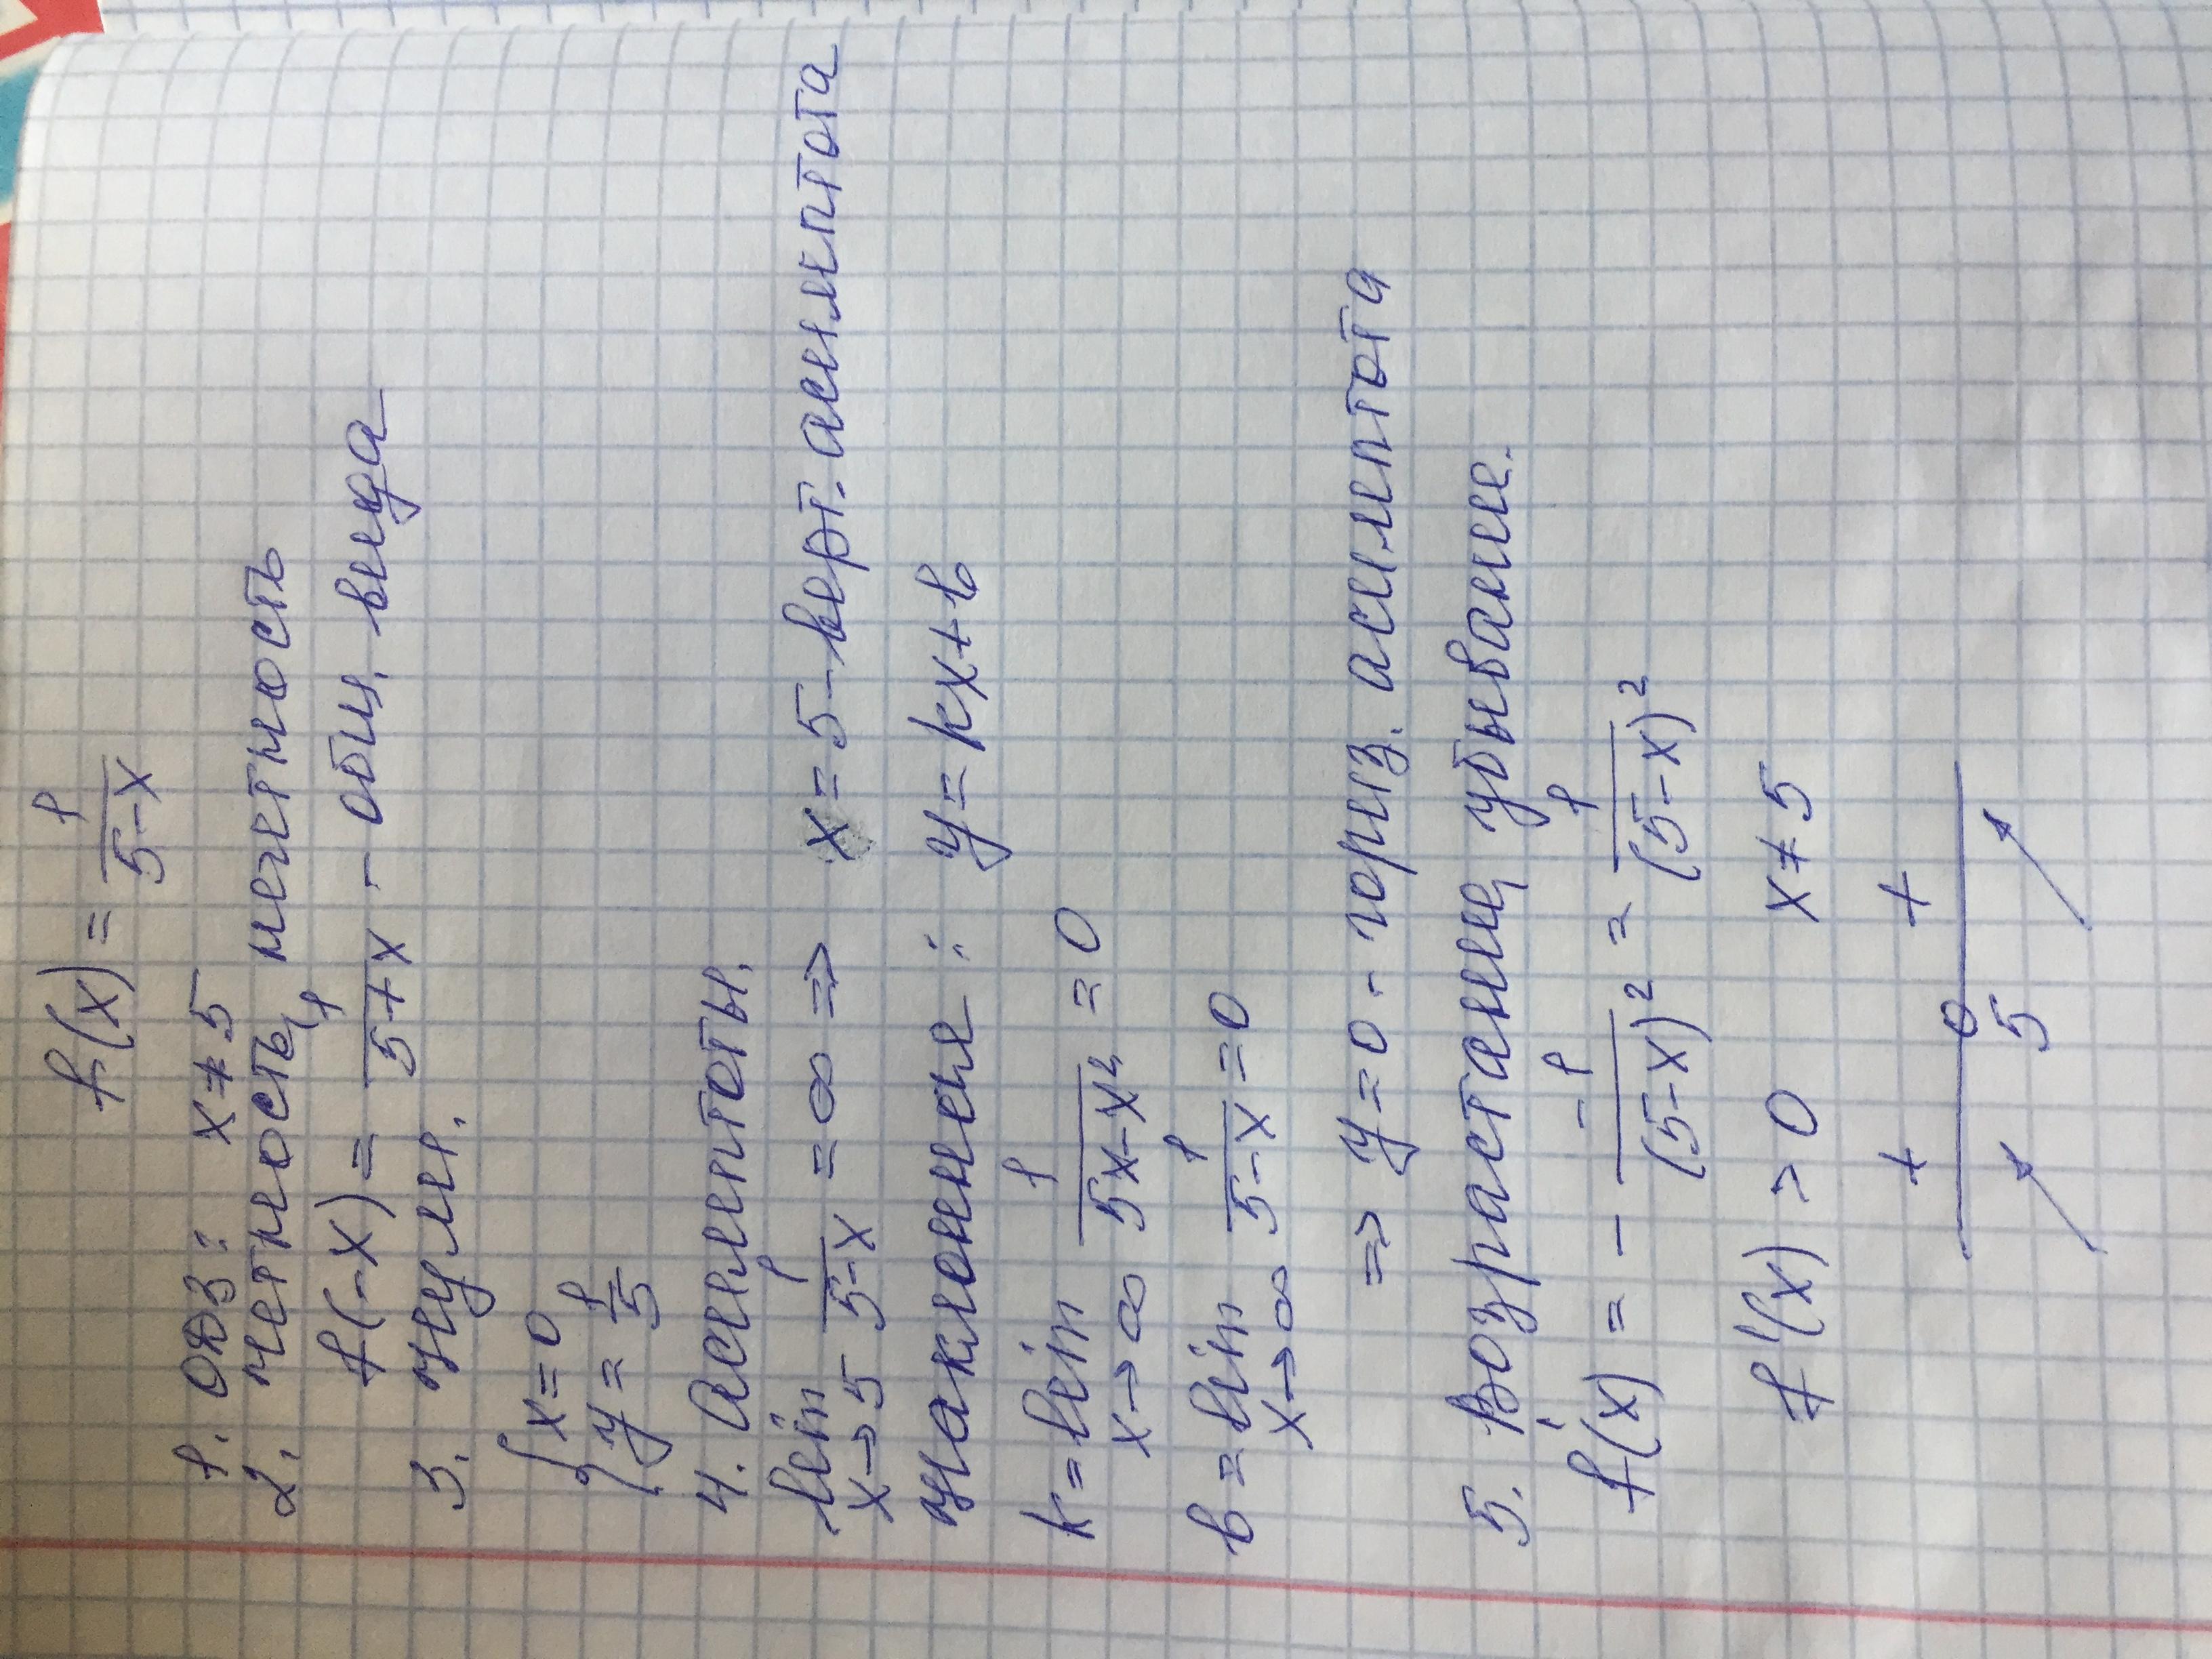 f(x) = 1/(5-x)
1. ОДЗ: x ≠ 5
2. четность, нечетность
f(-x) = 1/(5+x) - общ. вида
3. нули.
{ x = 0
{ y = 1/5
4. Асимптоты.
lim x→5 1/(5-x) = ∞ => x = 5 - верт. асимптота
наклонные: y = kx + b
k = lim x→∞ 1/(5x-x²) = 0
b = lim x→∞ 1/(5-x) = 0
=> y = 0 - гориз. асимптота
5. Возрастание, убывание.
f'(x) = - -1/(5-x)² = 1/(5-x)²
f'(x) > 0 x ≠ 5
+ +
5